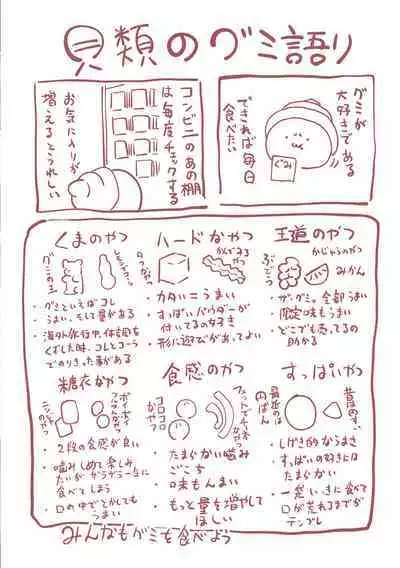 貝類のグミ語り
グミが
大好きである
できれば毎日
食べたい
ぐみ
コンビニのあの棚
は毎度チェックする
お気に入りが
増えるとうれしい
王道のやつ
かじゅうのやつ
ぶどう
みかん
・ザ・グミ。全部うまい
・限定味もうまい
・どこでも売ってるの
助かる
ハードなやつ
・カタい=うまい
・すっぱいパウダーが
付いてるの好き
・形に遊びがあってよい
くまのやつ
・グミといえばコレ
・うまい、そして量がある
・海外旅行中、体調を
くずした時、コレとコーラ
でのりきった事がある
すっぱいやつ
・しげき的なうまさ
・すっぱいの好きには
たまらない
・一気にいきに食べて
口が荒れるまでが
テンプレ
食感のやつ
コロコロ
なやつ
・たまらない噛み
ごこち
・味もんまい
・もっと量を増やして
ほしい
糖衣なやつ
・2段の食感が良い
・噛みしめて楽しみ
たいがザラザラ一気に
食べてしまう
・口の中でとかしても
うまい
みんなもグミを食べよう